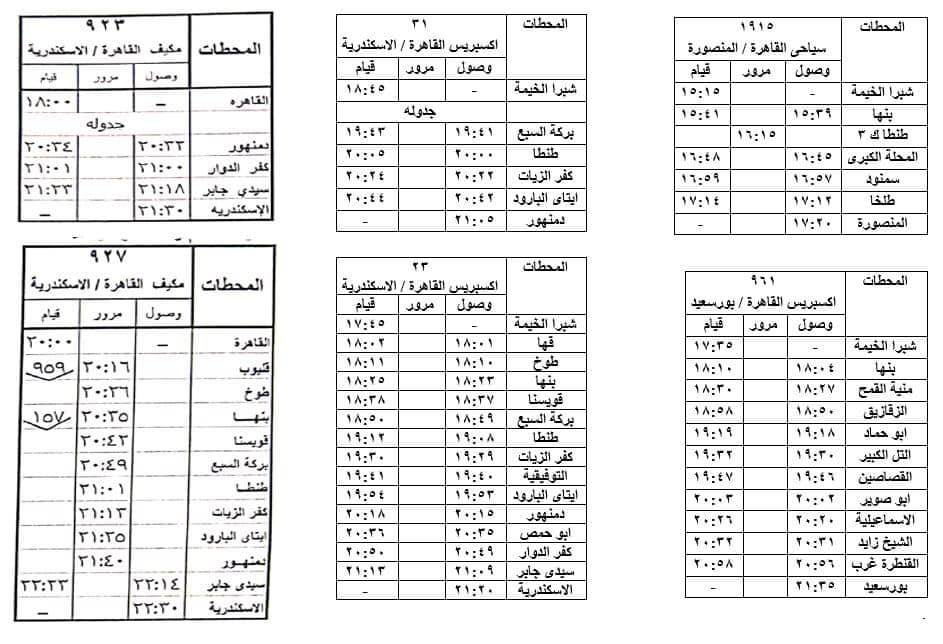 المحطات ١٩١٥
سياحى القاهرة / المنصورة
وصول مرور قيام
شبرا الخيمة - ١٥:١٥
بنها ١٥:٣٩ ١٥:٤١
طنطا ك ٣ ١٦:١٥
المحلة الكبرى ١٦:٤٥ ١٦:٤٨
سمنود ١٦:٥٧ ١٦:٥٩
طلخا ١٧:١٢ ١٧:١٤
المنصورة ١٧:٢٠ -
المحطات ٣١
اكسبريس القاهرة / الاسكندرية
وصول مرور قيام
شبرا الخيمة - ١٨:٤٥
جدوله
بركة السبع ١٩:٤١ ١٩:٤٣
طنطا ٢٠:٠٠ ٢٠:٠٥
كفر الزيات ٢٠:٢٢ ٢٠:٢٤
ايتاى البارود ٢٠:٤٢ ٢٠:٤٤
دمنهور ٢١:٠٥ -
المحطات ٩٢٣
مكيف القاهرة / الاسكندرية
وصول مرور قيام
القاهره – ١٨:٠٠
جدوله
دمنهور ٢٠:٣٢ ٢٠:٣٤
كفر الدوار ٢١:٠٠ ٢١:٠١
سيدي جابر ٢١:١٨ ٢١:٢٣
الإسكندريه ٢١:٣٠ –
المحطات ٩٦١
اكسبريس القاهرة / بورسعيد
وصول مرور قيام
شبرا الخيمة - ١٧:٣٥
بنها ١٨:٠٤ ١٨:١٠
منية القمح ١٨:٢٧ ١٨:٣٠
الزقازيق ١٨:٥٠ ١٨:٥٨
ابو حماد ١٩:١٨ ١٩:١٩
التل الكبير ١٩:٣٠ ١٩:٣٢
القصاصين ١٩:٤٦ ١٩:٤٧
ابو صوير ٢٠:٠٢ ٢٠:٠٣
الاسماعيلية ٢٠:٢٠ ٢٠:٢٦
الشيخ زايد ٢٠:٣١ ٢٠:٣٢
القنطرة غرب ٢٠:٥٦ ٢٠:٥٨
بورسعيد ٢١:٣٥ -
المحطات ٢٣
اكسبريس القاهرة / الاسكندرية
وصول مرور قيام
شبرا الخيمة - ١٧:٤٥
قها ١٨:٠١ ١٨:٠٢
طوخ ١٨:١٠ ١٨:١١
بنها ١٨:٢٣ ١٨:٢٥
قويسنا ١٨:٣٧ ١٨:٣٨
بركة السبع ١٨:٤٩ ١٨:٥٠
طنطا ١٩:٠٨ ١٩:١٢
كفر الزيات ١٩:٢٩ ١٩:٣٠
التوفيقية ١٩:٤٠ ١٩:٤١
ايتاى البارود ١٩:٥٣ ١٩:٥٤
دمنهور ٢٠:١٥ ٢٠:١٨
ابو حمص ٢٠:٣٥ ٢٠:٣٦
كفر الدوار ٢٠:٤٩ ٢٠:٥٠
سيدى جابر ٢١:٠٩ ٢١:١٣
الاسكندرية ٢١:٢٠ -
المحطات ٩٢٧
مكيف القاهرة / الاسكندرية
وصول مرور قيام
القاهرة – ٢٠:٠٠
قليوب ٢٠:١٦ ٩٥٩
طوخ ٢٠:٢٦
بنهـا ٢٠:٣٥ ١٥٧
قويسنا ٢٠:٤٣
بركة السبع ٢٠:٤٩
طنطـا ٢١:٠١
كفر الزيات ٢١:١٣
ايتاى البارود ٢١:٢٥
دمنهـور ٢١:٤٠
سيدى جابر ٢٢:١٤ ٢٢:٢٣
الاسكندرية ٢٢:٣٠ –